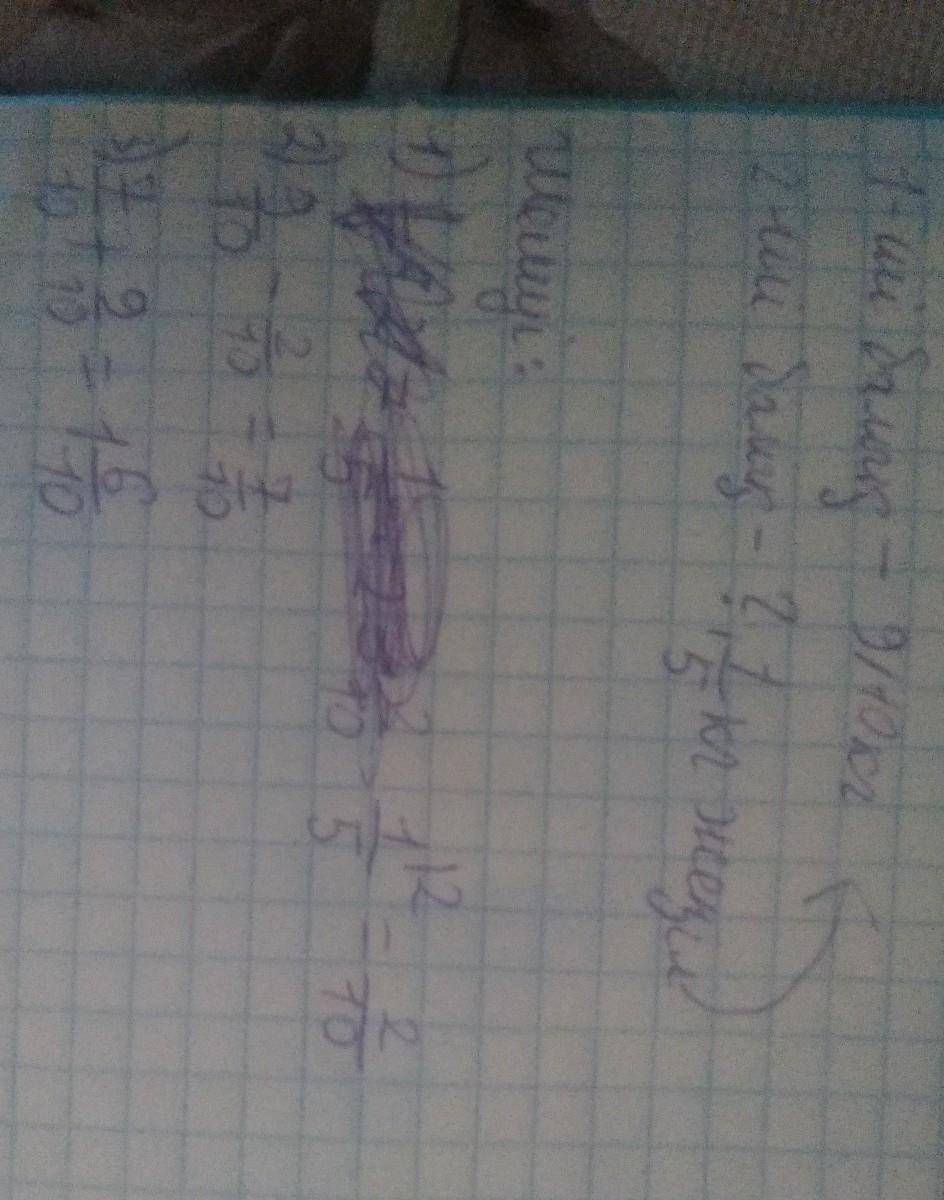 1-ші бөлшу - 9/10 кг
2-ші бөлшу - ? 1/5 кг жеңіл
Шешуі:
1) 1/5 |2 = 2/10
2) 9/10 - 2/10 = 7/10
3) 7/10 + 9/10 = 16/10